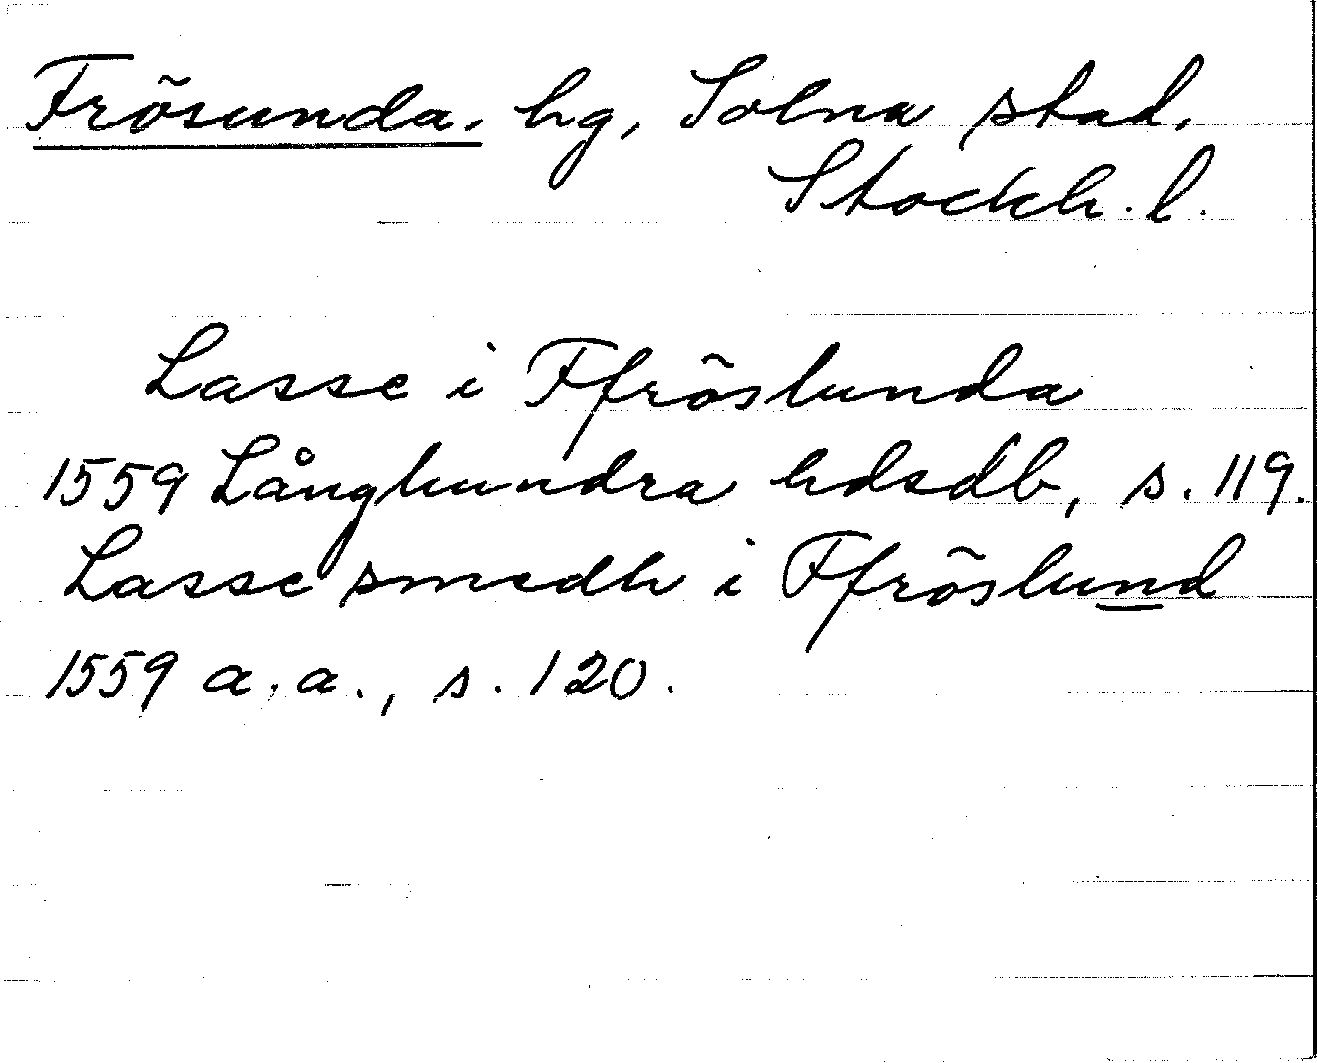 Frösunda, hg, Solna stad,
Stockh. l.
Lasse i Ffröslunda
1559 Långhundra hdsdb, s. 119.
Lasse smedh i Ffröslund
1559 a.a., s. 120.